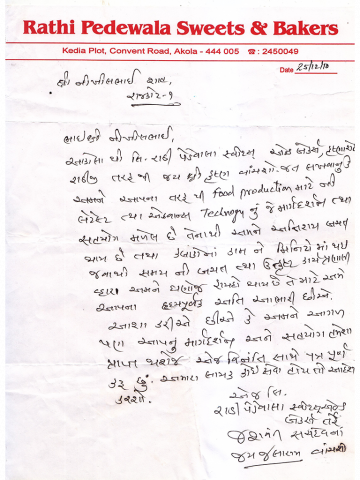 Rathi Pedewala Sweets & Bakers
Kedia Plot, Convent Road, Akola - 444 005 ☎ : 2450049
Date 25/12/10
શ્રી નીજીલભાઈ શાહ,
રાજકોટ-૧
ભાઈશ્રી નીજીલભાઈ,
આકોલા થી લિ. રાઠી પેડેવાલા સ્વીટસ્ એન્ડ બેકર્સ,
તરફથી જય શ્રી કૃષ્ણ વાંચશો. જત લખવાનું કે
અમને આપના તરફથી Food production માટે ની
લેટેસ્ટ તથા એડવાન્સ Technogy નું જે માર્ગદર્શન તથા
સહયોગ મળેલ છે તેનાથી અમને અતિશય
થાય છે તથા કલાકોનાં કામ ને મિનિટો માં થઈ
જવાથી સમય ની બચત તથા ઉત્કૃષ્ટ કાર્યપ્રણાલી
દ્વારા અમને ઘણોજ ફાયદો થાય છે તે માટે અમે
આપના હૃદયપૂર્વક અતિ આભારી છીએ.
આશા કરીએ છીએ કે અમને આગળ
પણ આપનું માર્ગદર્શન અને સહયોગ હંમેશા
પ્રાપ્ત થશેજ એજ વિનંતિ સાથે પત્ર પૂર્ણ
કરૂ છું. અમારા લાયક કોઈ સેવા હોય તો
કરશો.
એજ લિ.
રાઠી પેડેવાલા સ્વીટસ્ એન્ડ
બેકર્સ તર્ફે
જય જલારામ વાંચશો